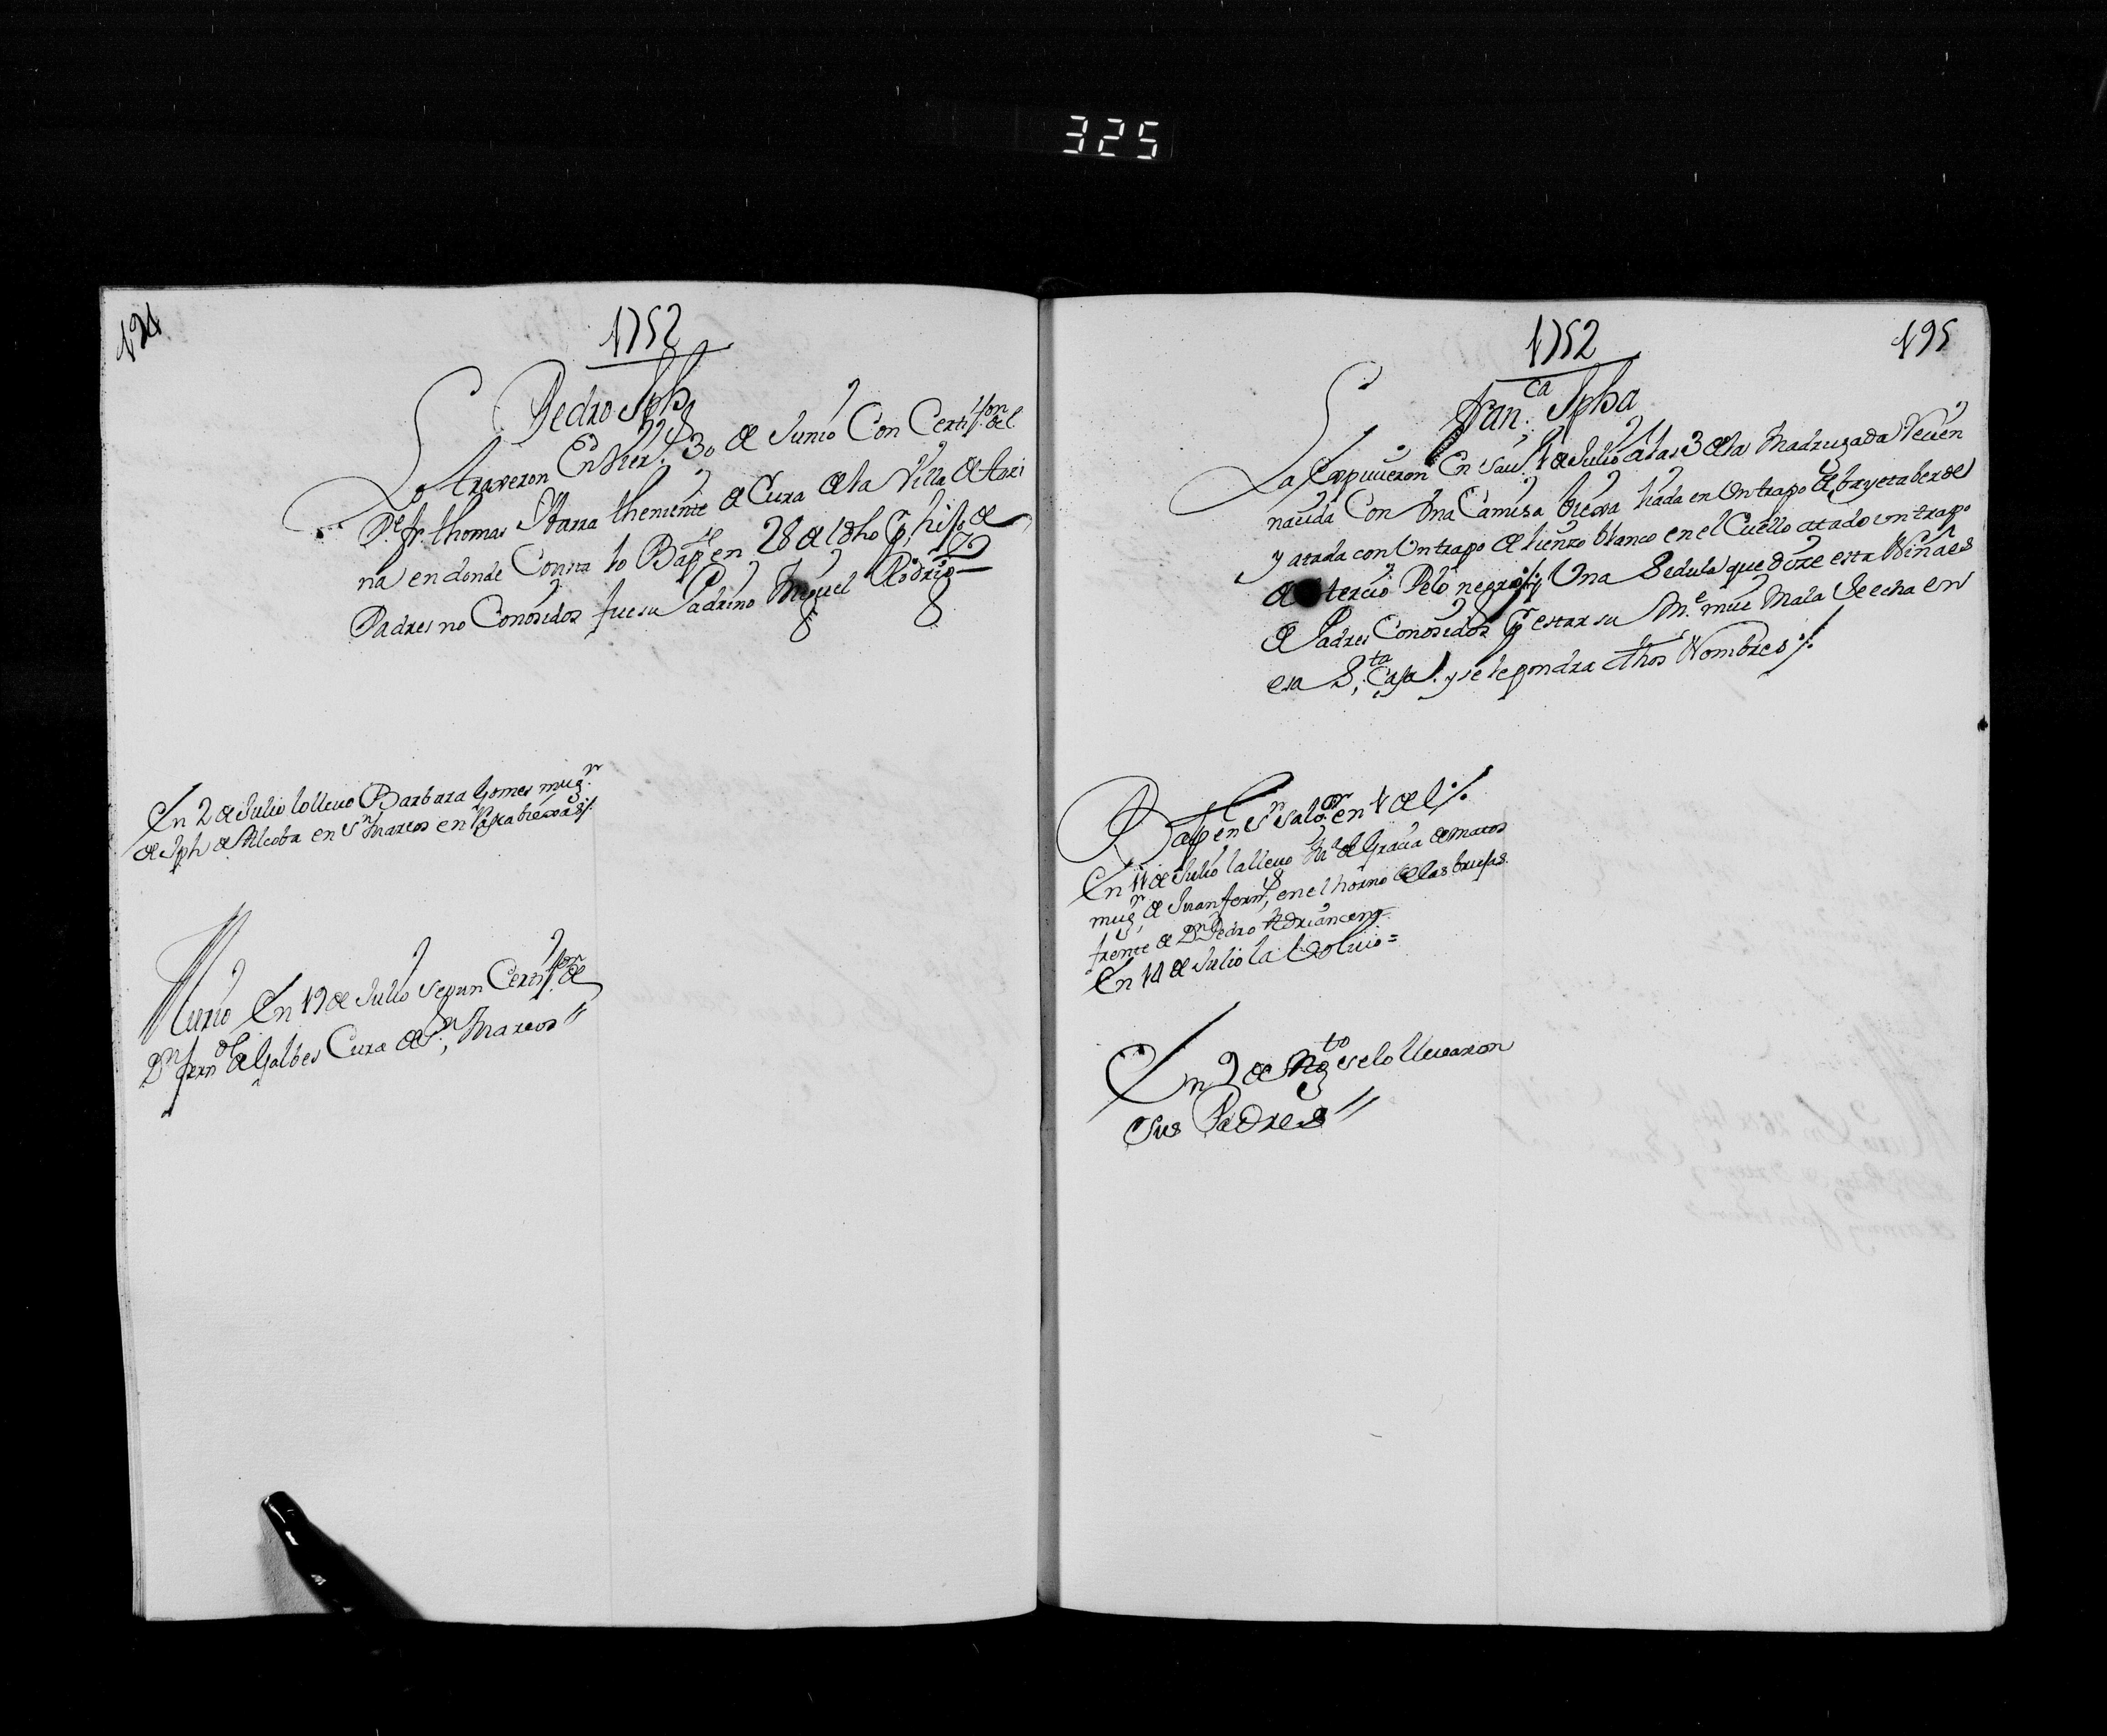 325
194
1752
Pedro Jph
Lo traxeron En Vier.s 30 de Junio Con Certif.on del
P.e fr. thomas Parra theniente de Cura de la Villa de toci
na en donde Consta lo Bap.te en 28 de dho Por hijo de
Padres no Conosidos fue su Padrino Miguel Rodrig.z
En 2 de Julio lo lleuo Barbara Gomes mug.r
de Jph de Alcoba en S.n Marcos en
Murio En 19 de Julio segun Certif.on de
D.n fern.do de Galbes Cura de S.n Marcos //
1752
195
Fran.ca Jpha
La Expusieron En Sau.o 1 de Julio a las 3 de la Madrugada Recien
nacida Con Una Camisa bieja liada en Un trapo de bayeta berde
y atada con Un trapo de lienzo blanco en el Cuello atado un trapo
de tercio Pelo negro y Una Sedula que dize esta Niña es
de Padres Conosidos Por estar su M.e mui Mala Se echa en
esa S.ta Casa y se le pondra dhos Nombres
Bap en S.n Salo.r en 1 de el
En 11 de Julio la lleuo M.a de Gracia de
mug.r de Juan fern.s en el horno de las brujas
frente de D.n Pedro
En 14 de Julio la boluio =
En 2 de Ag.to se lo lleuaron
sus Padres //